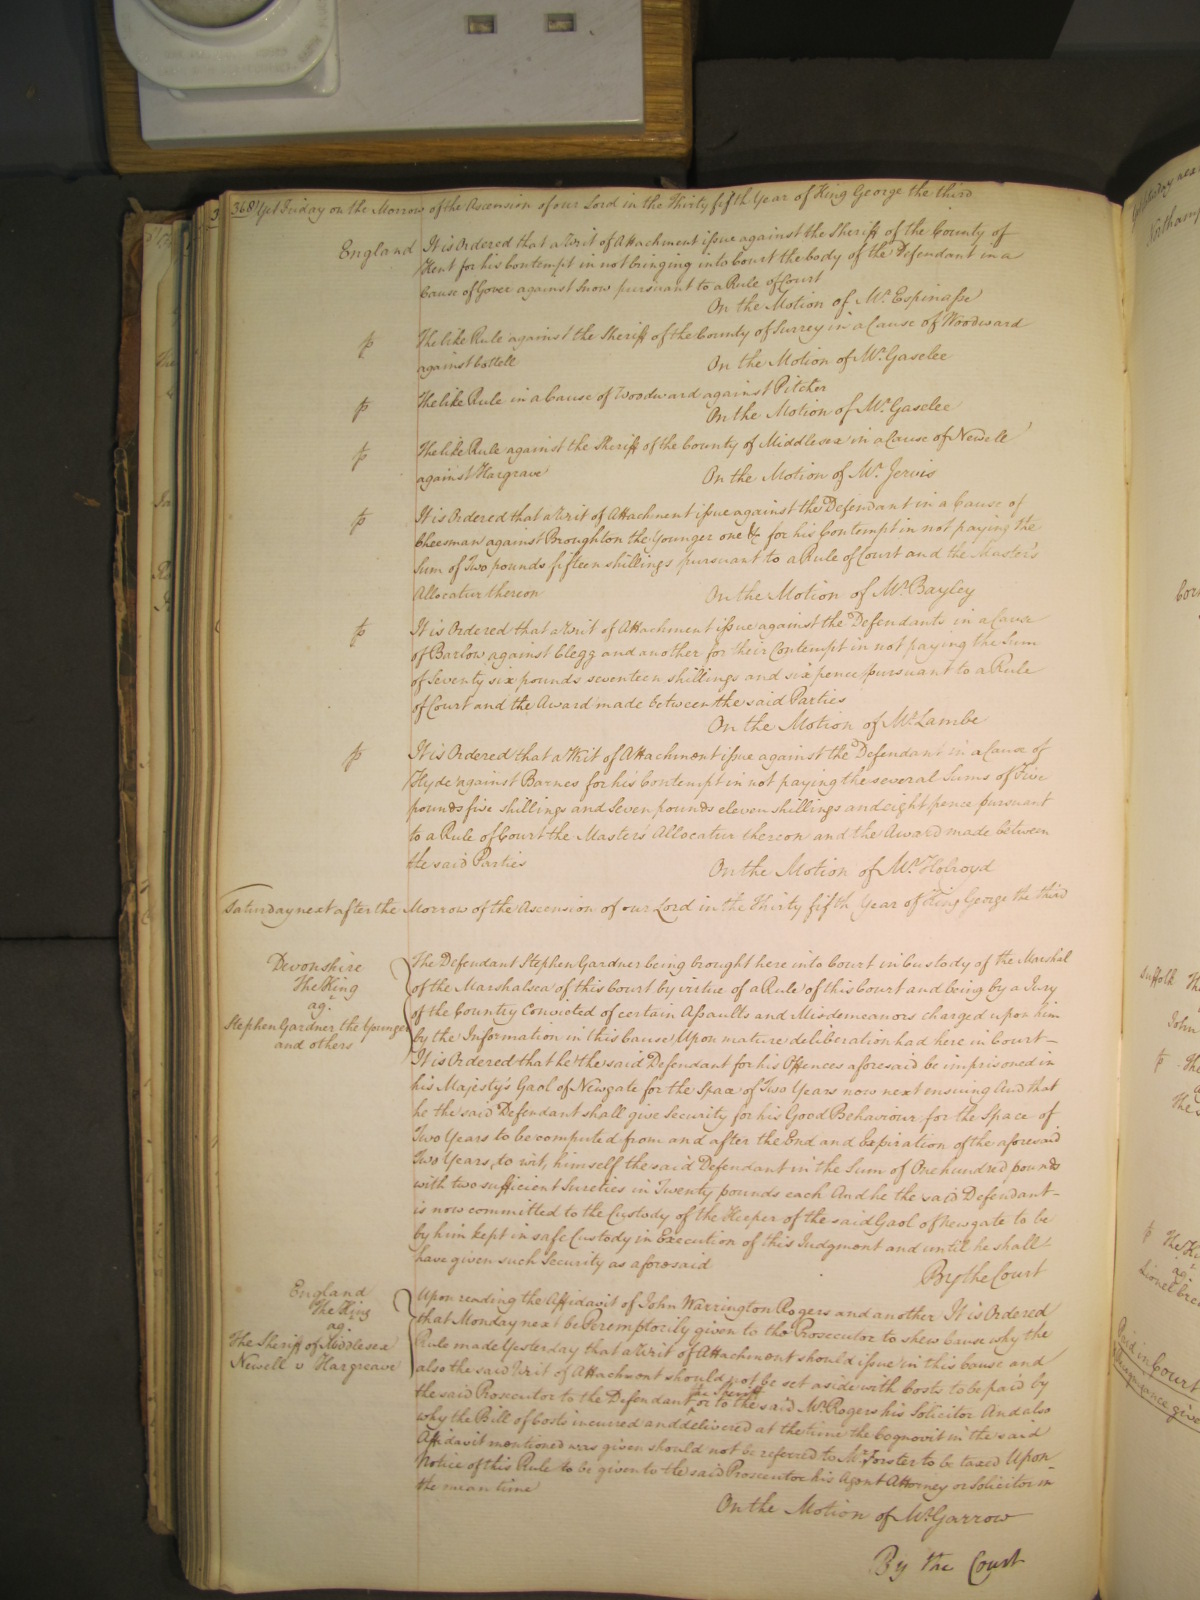 368 Yet Friday on the Morrow of the Ascension of our Lord in the Thirty fifth Year of King George the third
England It is Ordered that a Writ of Attachment issue against the Sheriff of the County of
Kent for his Contempt in not bringing into Court the body of the Defendant in a
Cause of Gover against Snow pursuant to a Rule of Court
On the Motion of Mr. Espinasse
The like Rule against the Sheriff of the County of Surrey in a Cause of Woodward
against Cottell
On the Motion of Mr. Gaselee
The like Rule in a Cause of Woodward against Pitcher
On the Motion of Mr. Gaselee
The like Rule against the Sheriff of the County of Middlesex in a Cause of Newell
against Hargrave
On the Motion of Mr. Jervis
It is Ordered that a Writ of Attachment issue against the Defendant in a Cause of
Cheesman against Broughton the Younger one &c for his Contempt in not paying the
Sum of Two pounds fifteen shillings pursuant to a Rule of Court and the Master's
Allocatur thereon
On the Motion of Mr. Bayley
It is Ordered that a Writ of Attachment issue against the Defendants in a Cause
of Barlow against Clegg and another for their Contempt in not paying the Sum
of Seventy six pounds seventeen shillings and six pence pursuant to a Rule
of Court and the Award made between the said Parties
On the Motion of Mr. Lambe
It is Ordered that a Writ of Attachment issue against the Defendant in a Cause of
Hyde against Barnes for his Contempt in not paying the several Sums of Five
pounds five shillings and Seven pounds eleven shillings and eight pence pursuant
to a Rule of Court the Master's Allocatur thereon and the Award made between
the said Parties
On the Motion of Mr. Holroyd
Saturday next after the Morrow of the Ascension of our Lord in the Thirty fifth Year of King George the third
Devonshire
The King
agt.
Stephen Gardner the Younger
and others
The Defendant Stephen Gardner being brought here into Court in Custody of the Marshal
of the Marshalsea of this Court by virtue of a Rule of this Court and being by a Jury
of the Country Convicted of certain Assaults and Misdemeanors charged upon him
by the Information in this Cause Upon mature deliberation had here in Court
It is Ordered that he the said Defendant for his Offences aforesaid be imprisoned in
his Majesty's Gaol of Newgate for the Space of Two Years now next ensuing And that
he the said Defendant shall give Security for his Good Behaviour for the Space of
Two Years to be computed from and after the End and Expiration of the aforesaid
Two Years, to wit, himself the said Defendant in the Sum of One hundred pounds
with two sufficient Sureties in Twenty pounds each And he the said Defendant
is now committed to the Custody of the Keeper of the said Gaol of Newgate to be
by him kept in safe Custody in Execution of this Judgment and until he shall
have given such Security as aforesaid
By the Court
England
The King
agt.
The Sheriff of Middlesex
Newell v Hargreave
Upon reading the Affidavit of John Warrington Rogers and another It is Ordered
that Monday next be Peremptorily given to the Prosecutor to shew Cause why the
Rule made Yesterday that a Writ of Attachment should issue in this Cause and
also the said Writ of Attachment should not be set aside with Costs to be paid by
the said Prosecutor to the Defendant the Sheriff or to the said Mr. Rogers his Solicitor And also
why the Bill of Costs incurred and delivered at the time the Cognovit in the said
Affidavit mentioned was given should not be referred to Mr. Forster to be taxed Upon
Notice of this Rule to be given to the said Prosecutor his Agent Attorney or Solicitor in
the mean time
On the Motion of Mr. Garrow
By the Court
Suffolk
John
Paid in Court